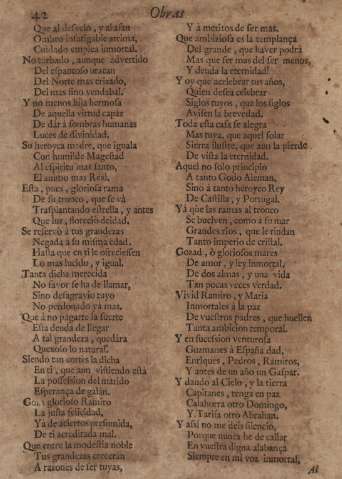 42 Obras
Que al desvelo, y al afan
Animo infatigable anima,
Cuidado emplea inmortal.
No turbado, aunque advertido
Del espantoso uracan
Del Norte mas erizado,
Del mas sino vendabal.
Y no menos hija hermosa
De aquella virtud capàz
De dàr à sombras humanas
Luces de divinidad,
Su heroyca madre, que iguala
Con humilde Magestad
Al espiritu mas santo,
El animo mas Real.
Esta, pues, gloriosa rama
De su tronco, que se và
Trasplantando estrella, y antes
Que luz, florecio deidad,
Se reservò à tus grandezas
Negada à su misma edad.
Hasta que en ti le ofreciessen
Lo mas lucido, y igual.
Tanta dicha merecida
No favor se ha de llamar,
Sino desagravio tuyo
No perdonado yà mas.
Que à no pagarte la suerte
Esta deuda de llegar
A tal grandeza, quedàra
Quexoso lo natural.
Siendo tan cortès la dicha
En ti, que aun vistiendo està
La possession del marido
Esperança de galàn.
Goza glorioso Ramiro
La justa felicidad,
Ya de aciertos presumida,
De ti acreditada mal.
Que entre la modestia noble
Tus grandezas creceràn
A razones de ser tuyas,
Y à meritos de ser mas.
Que ambiciosa es la templança
Del grande, que haver podrà
Mas que ser mas del ser menos,
Y deuda la eternidad!
Y oy que acelebrar tus años,
Quien desea celebrar
Siglos tuyos, que los siglos
Avisen la brevedad.
Toda esta casa se alegra
Mas tuya, que aquel solar
Sierra ilustre, que aun la pierde
De vista la eternidad.
Aquel no solo principio
A tanto Godo Aleman,
Sino à tanto heroyco Rey
De Castilla, y Portugal.
Yà que las ramas al tronco
Se buelven, como à su mar
Grandes rios, que le rindan
Tanto imperio de cristal.
Gozad, ò gloriosos mares
De amor, y ley inmortal,
De dos almas, y una vida
Tan pocas veces verdad.
Vivid Ramiro, y Maria
Inmortales à la paz
De vuestros padres, que huellen
Tanta ambicion temporal.
Y en succession venturosa
Guzmanes à España dad,
Enriques, Pedros, Ramiros,
Y antes de un año un Gaspar.
Y dando al Cielo, y la tierra
Capitanes, tenga en paz
Calaborra otro Domingo,
Y Tarifa otro Abrahan.
Y assi no me deis silencio,
Porque nunca he de callar
En vuestra digna alabança
Siempre en mi voz inmortal,
Al